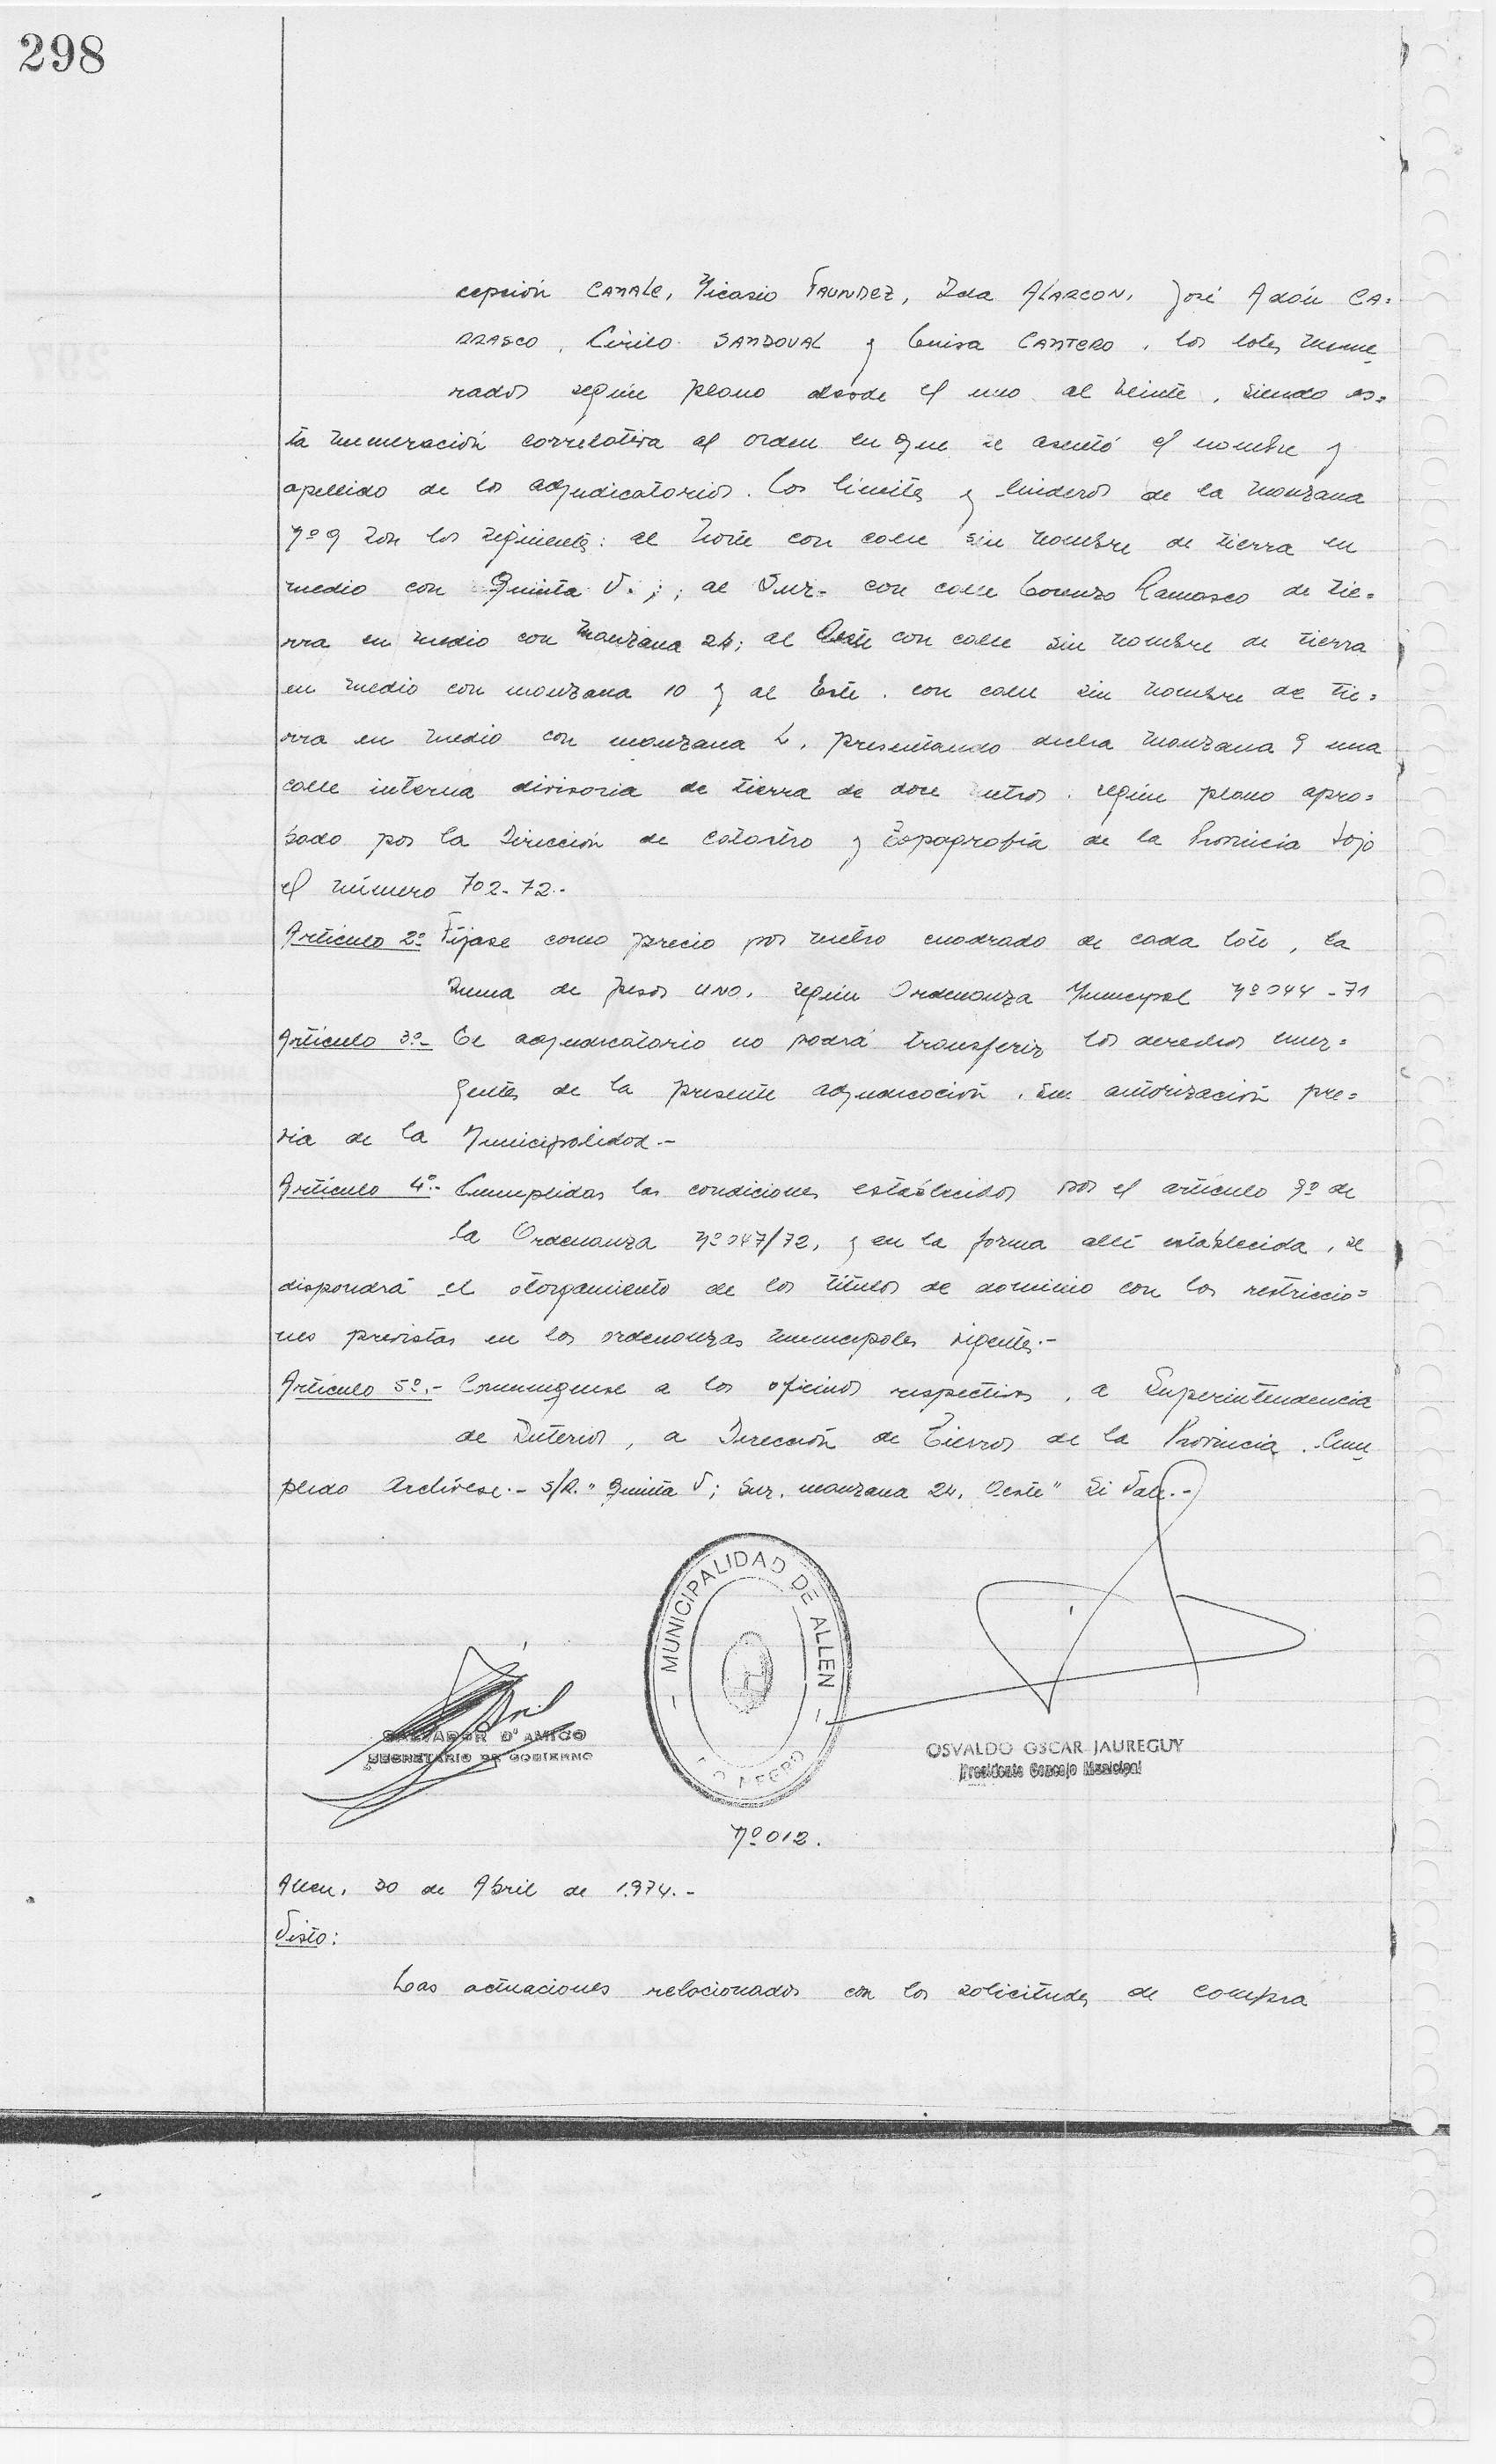 298
cepción CANALE, Nicasio FAUNDEZ, Ida ALARCON, José Adán CA=
RRASCO, Cirilo SANDOVAL y Luisa CANTERO, los lotes nume
rados según plano desde el uno al veinte, siendo es=
ta numeración correlativa al orden en que se asentó el nombre y
apellido de los adjudicatorios. Los límites y linderos de la manzana
Nº 9 son los siguientes: al Norte con calle sin nombre de tierra en
medio con Quinta V.; al Sur- con calle Lorenzo Ramasco de tie=
rra en medio con Manzana 24; al Oeste con calle sin nombre de tierra
en medio con manzana 10 y al Este, con calle sin nombre de tie=
rra en medio con manzana L, presentando dicha manzana 9 una
calle interna divisoria de tierra de doce metros, según plano apro=
bado por la Dirección de Catastro y Topografía de la Provincia bajo
el número 702-72.-
Artículo 2º Fíjase como precio por metro cuadrado de cada lote, la
suma de pesos UNO, según Ordenanza Municipal Nº 044-71
Artículo 3º- El adjudicatorio no podrá transferir los derechos emer=
gentes de la presente adjudicación, sin autorización pre=
via de la Municipalidad.-
Artículo 4º.- Cumplidas las condiciones establecidas por el artículo 9º de
la Ordenanza Nº 047/72, y en la forma allí establecida, se
dispondrá el otorgamiento de los títulos de dominio con las restriccio=
nes previstas en las ordenanzas municipales vigentes.-
Artículo 5º.- Comuníquese a las oficinas respectivas, a Superintendencia
de Interior, a Dirección de Tierras de la Provincia. Cum
plido Archívese.- S/R. "Quinta V; Sur. manzana 24, Oeste" Si Vale.-
MUNICIPALIDAD DE ALLEN
RIO NEGRO
SALVADOR D'AMICO
SECRETARIO DE GOBIERNO
OSVALDO OSCAR JAUREGUY
Presidente Concejo Municipal
Nº 012.
Allen, 30 de Abril de 1.974.-
Visto:
Las actuaciones relacionadas con las solicitudes de compra